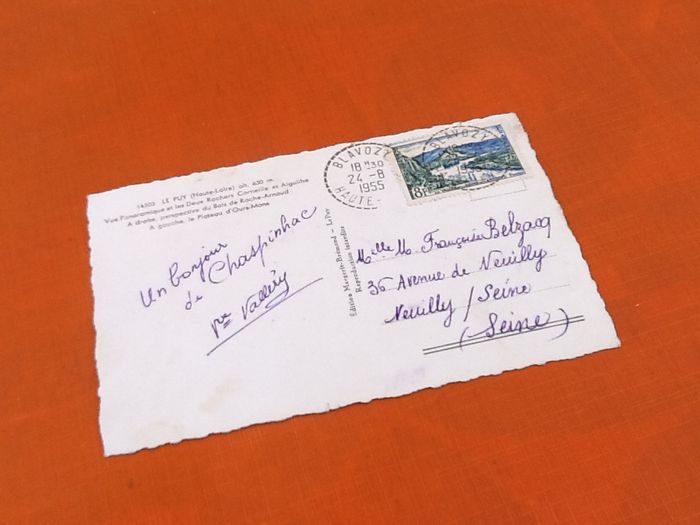 14303 LE PUY (Haute-Loire) alt. 630 m.
Vue Panoramique et les Deux Rochers Corneille et Aiguilhe
A droite, perspective du Bois de Roche-Arnaud
A gauche, le Plateau d'Ours-Mons
Un bonjour
de Chaspinhac
Vallery
Edition Margerit-Brémond - Le Puy
Reproduction interdite
BLAVOZY
18 H 30
24 - 8
1955
HAUTE-
BLAVOZY
18F
Melle M. Françoise Belzacq
36 Avenue de Neuilly
Neuilly / Seine
(Seine)